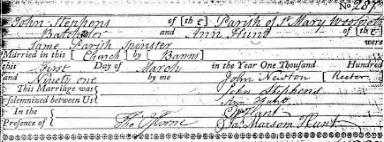 No 237
John Stephens of [the] Parish of St Mary Woolnoth
Batchelor and Ann Hunt of [the]
Same Parish Spinster were
Married in this [Church] by [Banns]
this First Day of March in the Year One Thousand Hundred
and Ninety one by me John Newton [Rector]
This Marriage was John Stephens
solemnized between Us Ann Hunt
In the
Presence of Thos Horne Jas Marsom Hunt